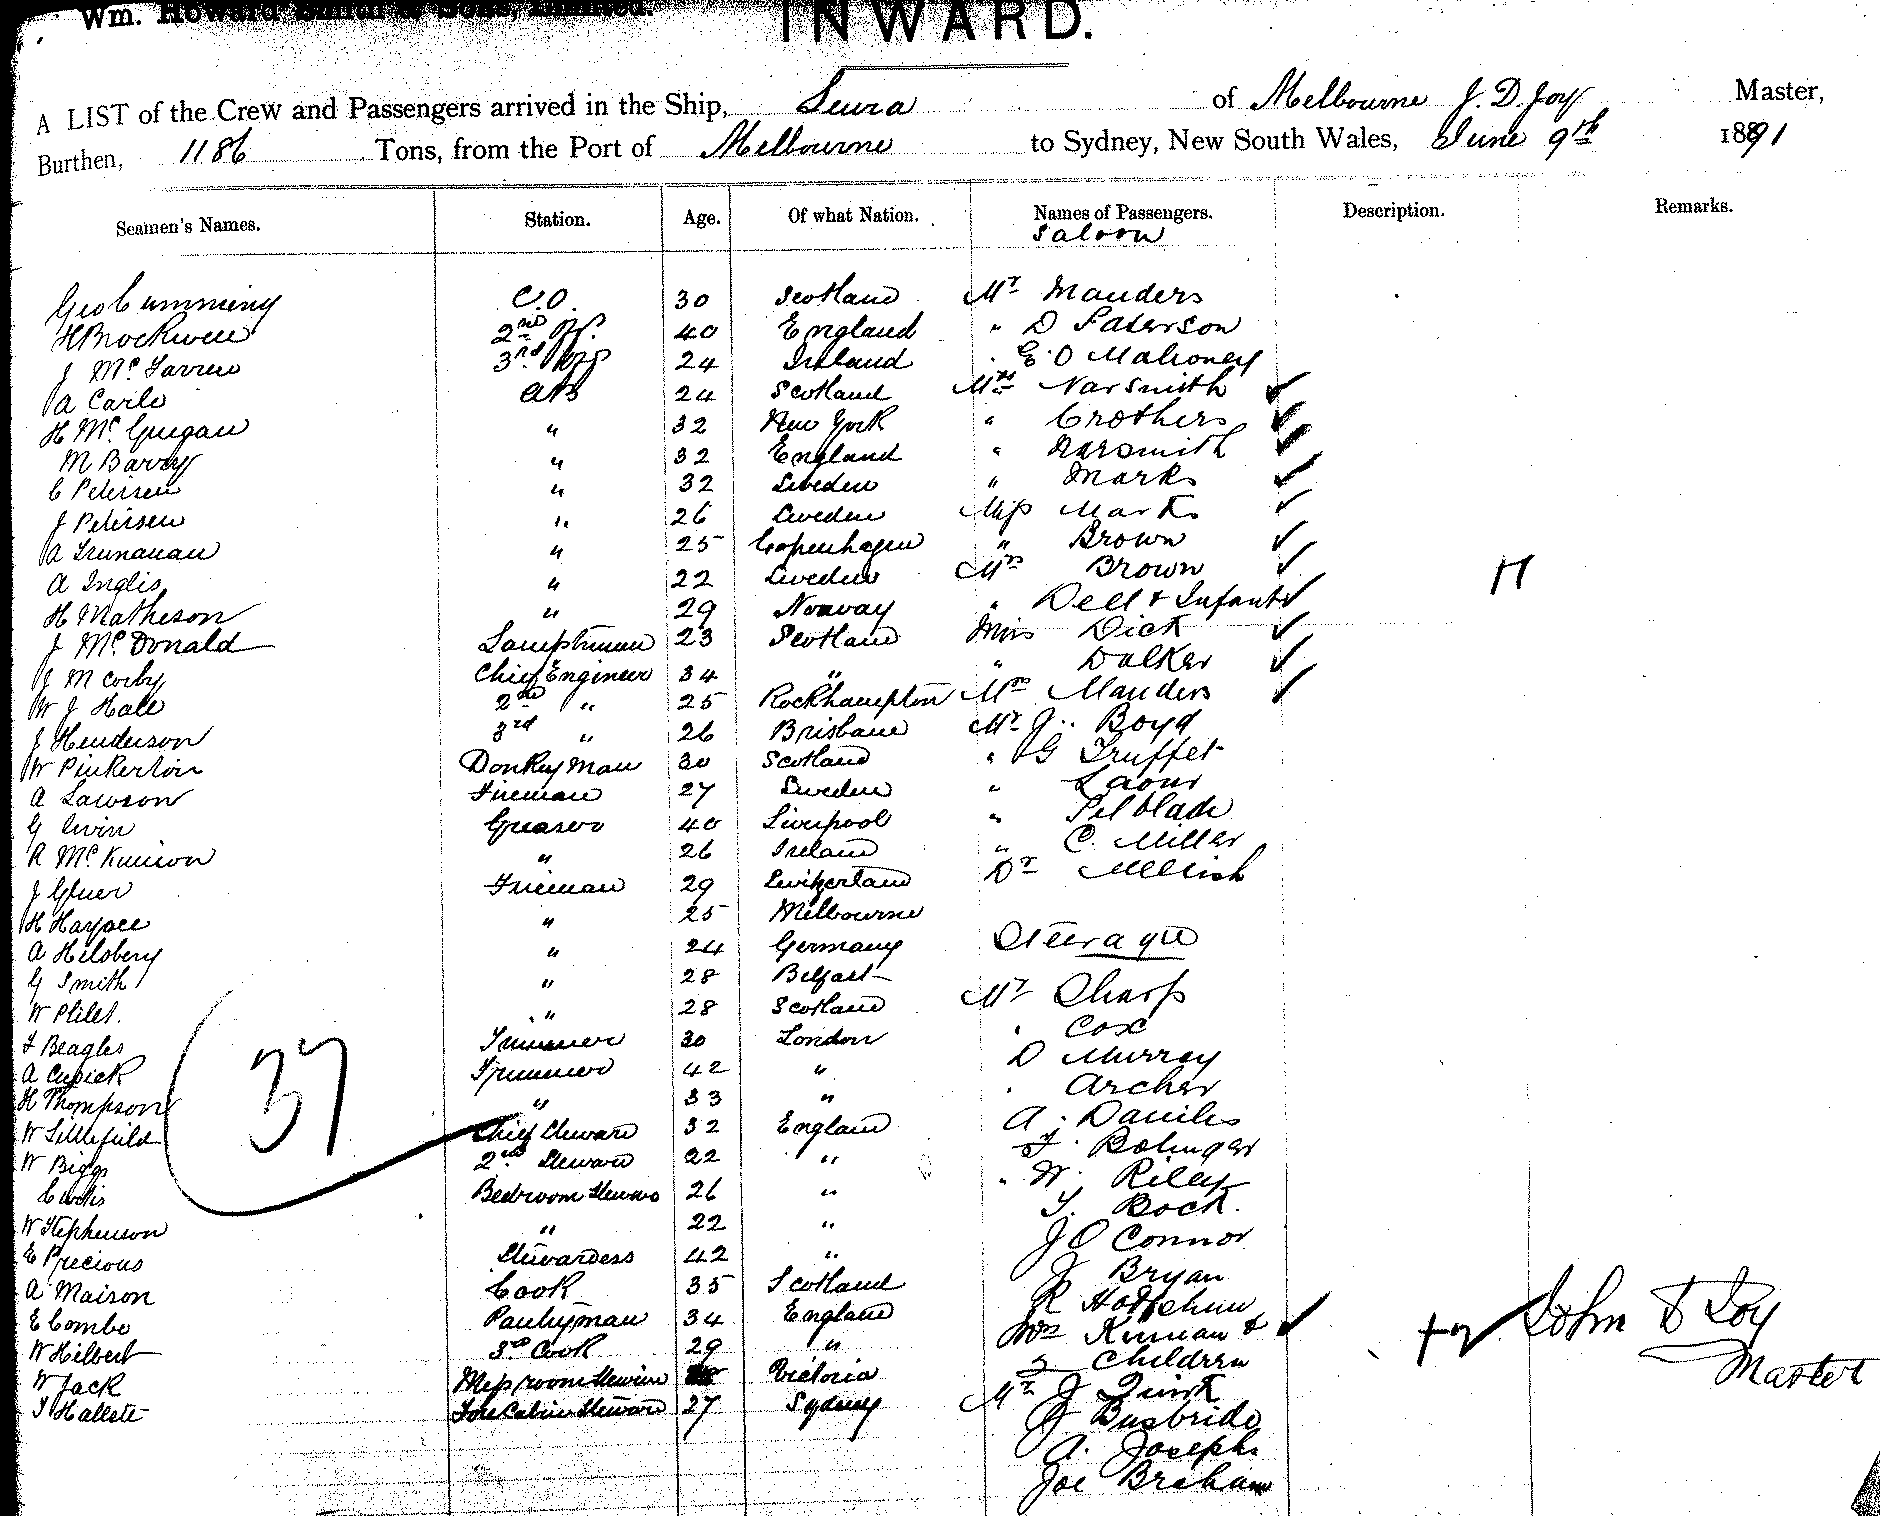 Wm. Howard Smith & Sons, Limited.
INWARD.
A LIST of the Crew and Passengers arrived in the Ship, Leura of Melbourne J. D. Joy Master,
Burthen, 1186 Tons, from the Port of Melbourne to Sydney, New South Wales, June 9th 1891
Seamen's Names. Station. Age. Of what Nation. Names of Passengers. Description. Remarks.
Saloon
Geo Cumming C.O. 30 Scotland Mr Manders
H Brockwell 2nd Off. 40 England " D Paterson
J Mc 3rd Off 24 Ireland E. O Mahoney
A Carle AB 24 Scotland Mrs Narsmith ✓
H Mc Guigan " 32 New York " Crothers ✓
M Barry " 32 England " Narsmith ✓
C Petersen " 32 Sweden " Marks ✓
J Petersen " 26 Sweden Miss Marks ✓
A " 25 Copenhagen " Brown ✓
A Inglis " 22 Sweden Mrs Brown ✓
H Matheson " 29 Norway " Dell & Infant ✓
H
J Mc Donald Lamptrimmer 23 Scotland Miss Dick ✓
J M Corby Chief Engineer 34 " " Dalker ✓
W J Hall 2nd " 25 Rockhampton Mrs Manders ✓
J Henderson 3rd " 26 Brisbane Mr J. Boyd
W Pinkerton Donkeyman 30 Scotland " G Truffet
A Lawson Fireman 27 Sweden "
G Irvin Greaser 40 Liverpool "
R Mc Kinison " 26 Ireland " C. Miller
J Fireman 29 Switzerland Dr Mellish
H " 25 Melbourne
A Hilsberg " 24 Germany Steerage
G Smith " 28 Belfast
W " 28 Scotland Mr Sharp
F Beagles Trimmer 30 London " Cox
A Cusick Trimmer 42 " D Murray
H Thompson " 33 " Archer
37
W Littlefield Chief Steward 32 England A. Daniles
W Biggs 2nd Steward 22 " F. Bolinger
Curtis Bedroom Steward 26 " " W. Riley
W Stephenson " 22 " T. Bock.
E Precious Stewardess 42 " J O Connor
A Maison Cook 35 Scotland J Bryan
E Combe Pantryman 34 England R
W Hilbert 3rd Cook 29 " Mrs Kirnan & ✓
Children
W Jack Messroom Steward Victoria Mr J Quirk
T Hallett Forecabin Steward 27 Sydney J Busbride
A. Joseph
Joe Braham
John D Joy
Master